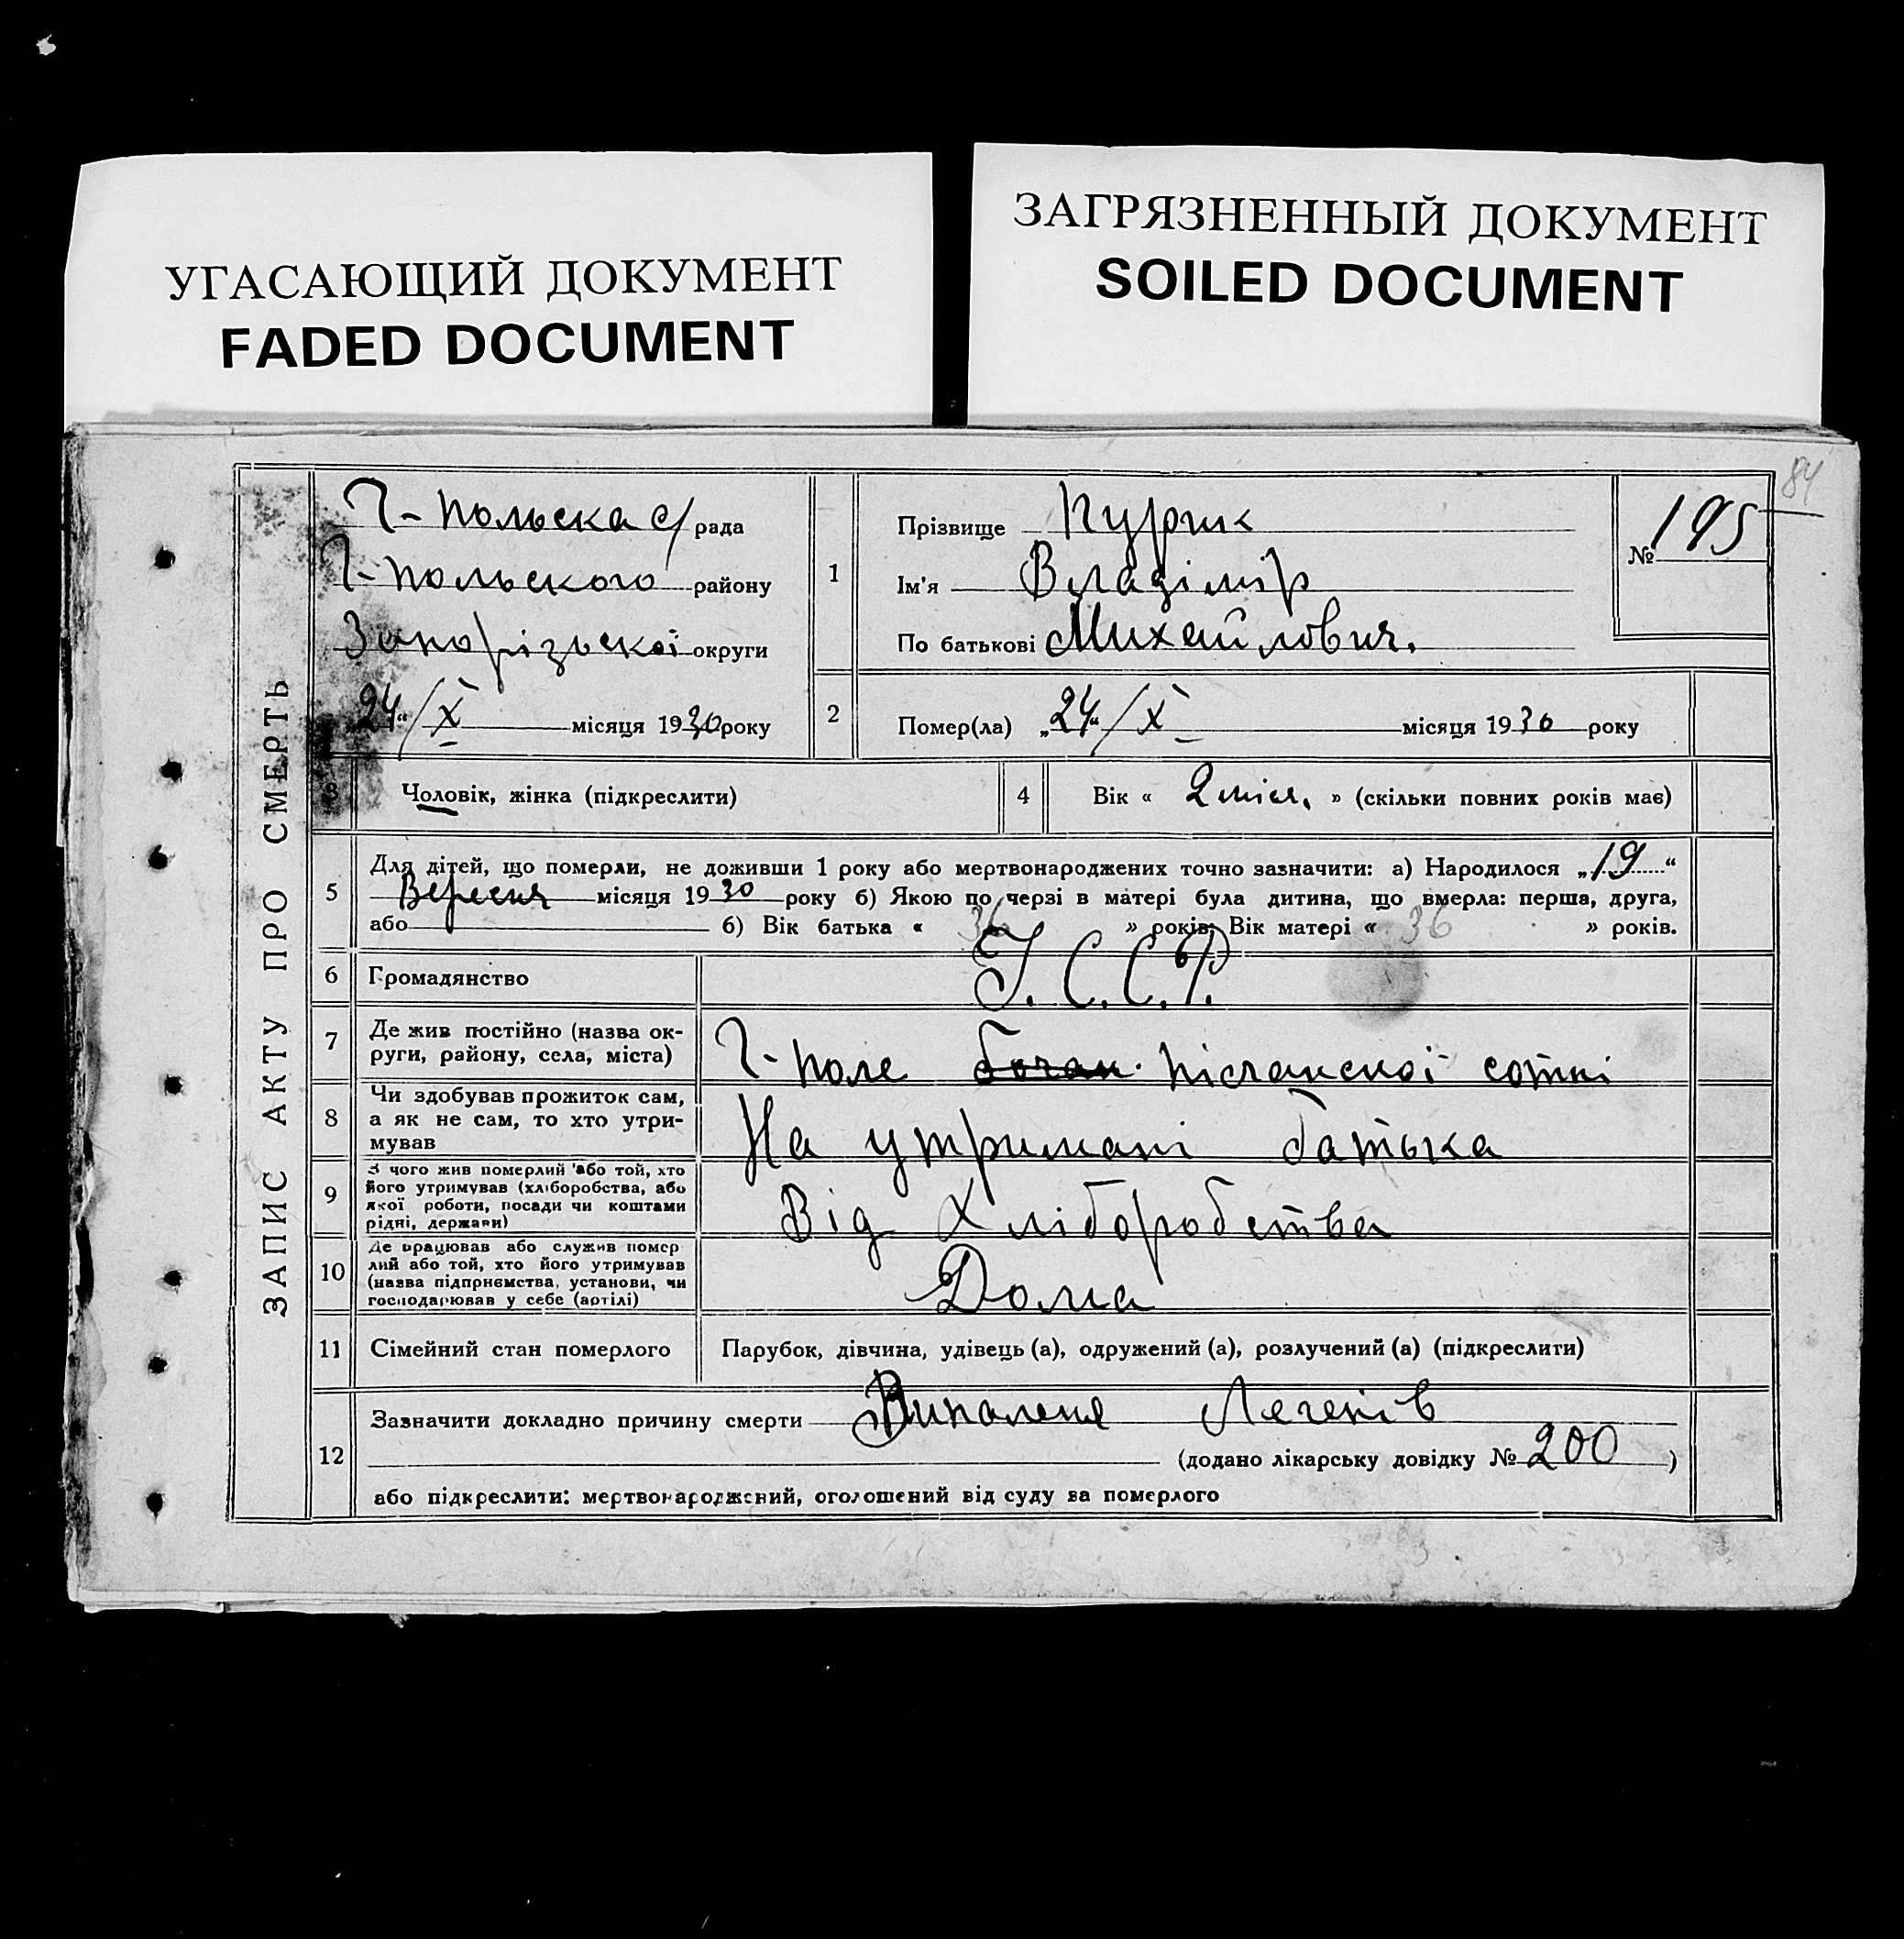 УГАСАЮЩИЙ ДОКУМЕНТ
FADED DOCUMENT
ЗАГРЯЗНЕННЫЙ ДОКУМЕНТ
SOILED DOCUMENT
84
ЗАПИС АКТУ ПРО СМЕРТЬ
Г-Польска с/рада
Г-Польского району
Запорізької округи
„24“/X місяця 1930 року
1
Прізвище
Ім'я Владімір
По батькові Михайлович.
№ 195
2
Помер(ла) „24“/X місяця 1930 року
3
Чоловік, жінка (підкреслити)
4
Вік « 2 міся. » (скільки повних років має)
5
Для дітей, що померли, не доживши 1 року або мертвонароджених точно зазначити: а) Народилося „19“
Вересня місяця 1930 року б) Якою по черзі в матері була дитина, що вмерла: перша, друга,
або б) Вік батька « 36 » років; Вік матері « 36 » років.
6
Громадянство
У.С.С.Р.
7
Де жив постійно (назва ок-
руги, району, села, міста)
Г-Поле Пісчанскої сотні
8
Чи здобував прожиток сам,
а як не сам, то хто утри-
мував
На утримані батька
9
З чого жив померлий або той, хто
його утримував (хліборобства, або
якої роботи, посади чи коштами
рідні, держави)
Від Хліборобства
10
Де працював або служив помер
лий або той, хто його утримував
(назва підприємства, установи, чи
господарював у себе (артілі)
Дома
11
Сімейний стан померлого
Парубок, дівчина, удівець (а), одружений (а), розлучений (а) (підкреслити)
12
Зазначити докладно причину смерти Випаленя Легенів
(додано лікарську довідку № 200 )
або підкреслити: мертвонароджений, оголошений від суду за померлого